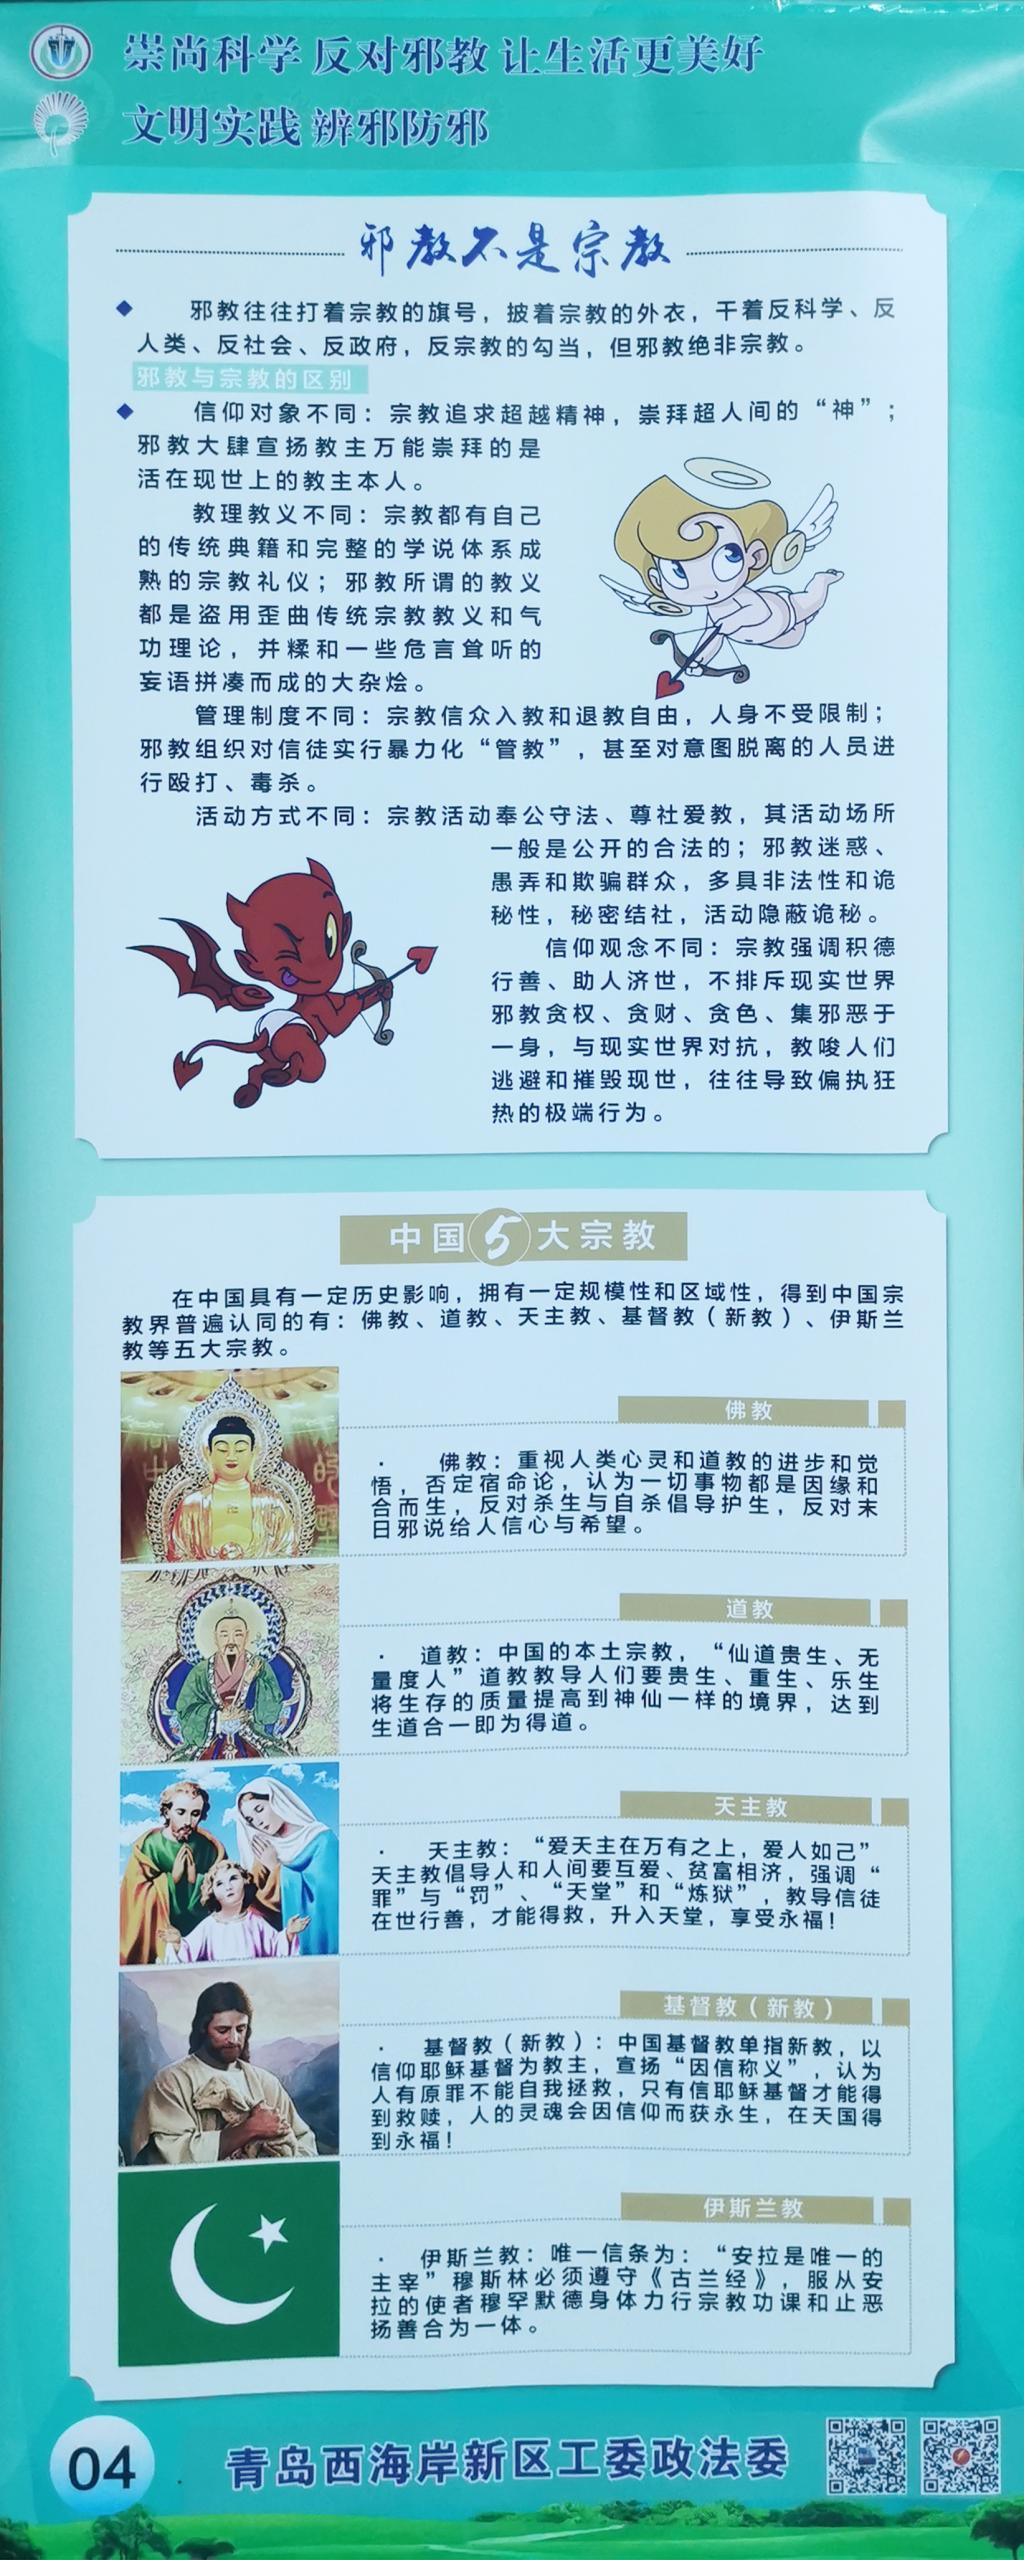 崇尚科学 反对邪教 让生活更美好
文明实践 辨邪防邪
邪教不是宗教
邪教往往打着宗教的旗号，披着宗教的外衣，干着反科学、反
人类、反社会、反政府，反宗教的勾当，但邪教绝非宗教。
邪教与宗教的区别
信仰对象不同：宗教追求超越精神，崇拜超人间的“神”；
邪教大肆宣扬教主万能崇拜的是
活在现世上的教主本人。
教理教义不同：宗教都有自己
的传统典籍和完整的学说体系成
熟的宗教礼仪；邪教所谓的教义
都是盗用歪曲传统宗教教义和气
功理论，并糅和一些危言耸听的
妄语拼凑而成的大杂烩。
管理制度不同：宗教信众入教和退教自由，人身不受限制；
邪教组织对信徒实行暴力化“管教”，甚至对意图脱离的人员进
行殴打、毒杀。
活动方式不同：宗教活动奉公守法、尊社爱教，其活动场所
一般是公开的合法的；邪教迷惑、
愚弄和欺骗群众，多具非法性和诡
秘性，秘密结社，活动隐蔽诡秘。
信仰观念不同：宗教强调积德
行善、助人济世，不排斥现实世界
邪教贪权、贪财、贪色、集邪恶于
一身，与现实世界对抗，教唆人们
逃避和摧毁现世，往往导致偏执狂
热的极端行为。
中国5大宗教
在中国具有一定历史影响，拥有一定规模性和区域性，得到中国宗
教界普遍认同的有：佛教、道教、天主教、基督教（新教）、伊斯兰
教等五大宗教。
佛教
· 佛教：重视人类心灵和道教的进步和觉
悟，否定宿命论，认为一切事物都是因缘和
合而生，反对杀生与自杀倡导护生，反对末
日邪说给人信心与希望。
道教
· 道教：中国的本土宗教，“仙道贵生、无
量度人”道教教导人们要贵生、重生、乐生
将生存的质量提高到神仙一样的境界，达到
生道合一即为得道。
天主教
· 天主教：“爱天主在万有之上，爱人如己”
天主教倡导人和人间要互爱、贫富相济，强调“
罪”与“罚”、“天堂”和“炼狱”，教导信徒
在世行善，才能得救，升入天堂，享受永福！
基督教（新教）
· 基督教（新教）：中国基督教单指新教，以
信仰耶稣基督为教主，宣扬“因信称义”，认为
人有原罪不能自我拯救，只有信耶稣基督才能得
到救赎，人的灵魂会因信仰而获永生，在天国得
到永福！
伊斯兰教
· 伊斯兰教：唯一信条为：“安拉是唯一的
主宰”穆斯林必须遵守《古兰经》，服从安
拉的使者穆罕默德身体力行宗教功课和止恶
扬善合为一体。
04
青岛西海岸新区工委政法委